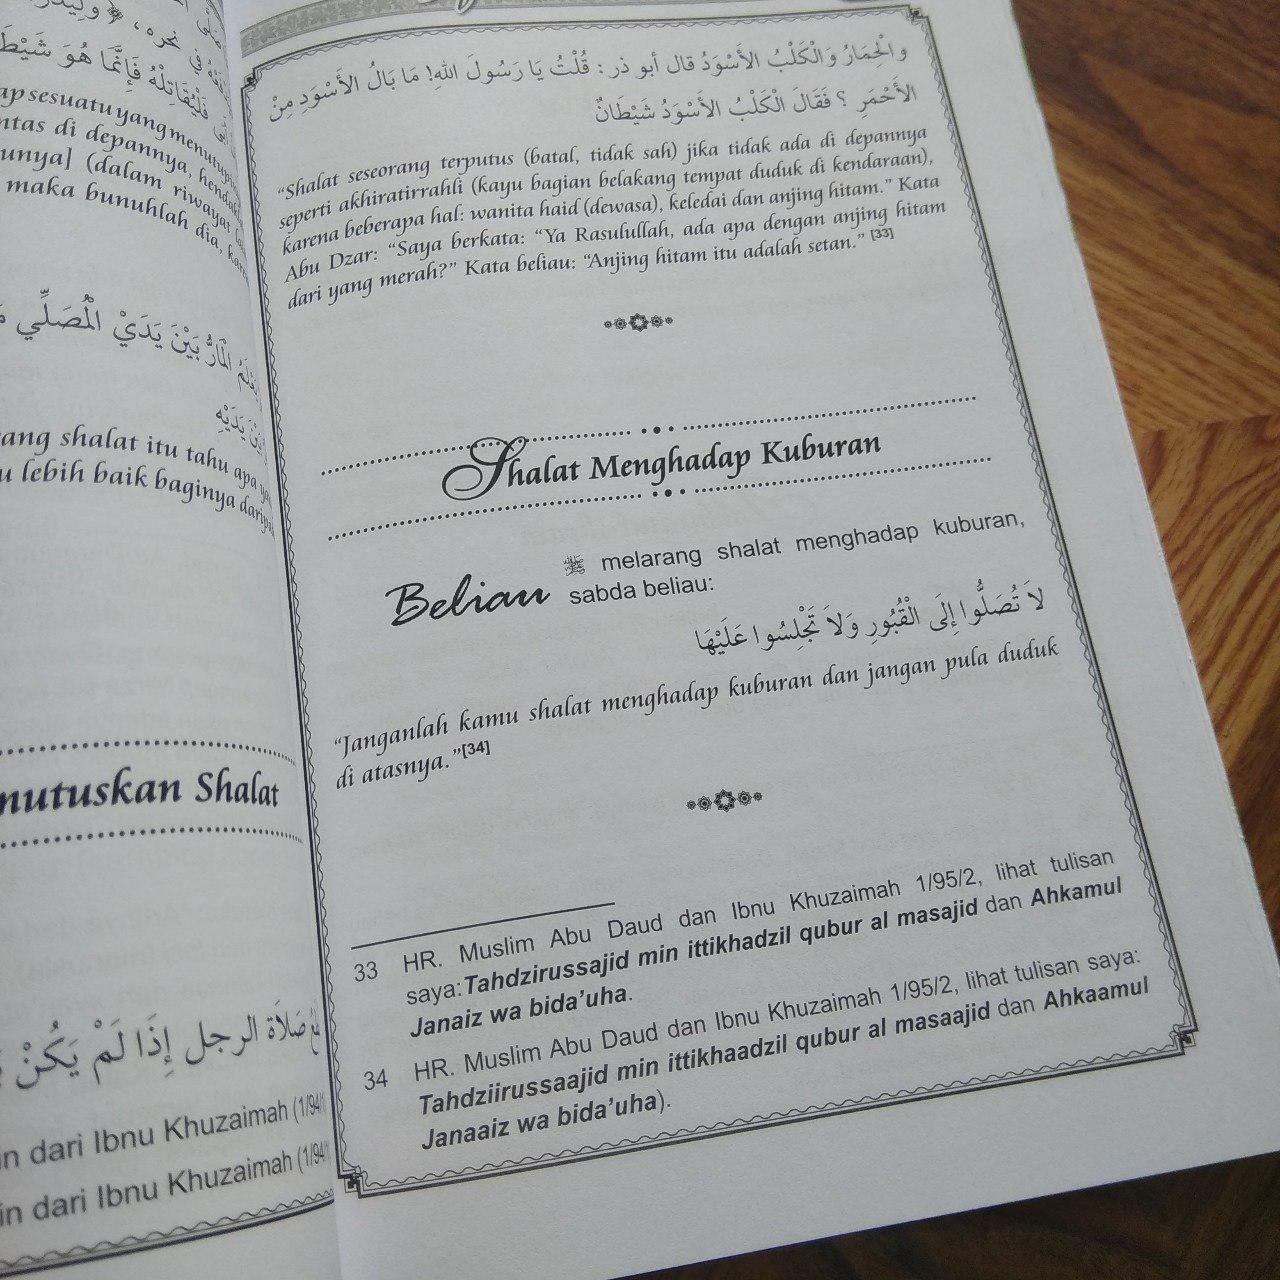 فَلْيُقَاتِلْهُ فَإِنَّمَا هُوَ
sesuatu yang
ntas di depannya,
unya] (dalam riwayat
maka bunuhlah dia,
الْمَارُّ بَيْنَ يَدَيْ الْمُصَلِّي
يَدَيْهِ
ang shalat itu tahu apa
u lebih baik baginya
nutuskan Shalat
صَلاَة الرجل إِذَا لَمْ يَكُنْ
n dari Ibnu Khuzaimah
in dari Ibnu Khuzaimah
والْحِمَارُ وَالْكَلْبُ الأَسْوَدُ قال أبو ذر : قُلْتُ يَا رَسُولَ اللهِ! مَا بَالُ الأَسْوَدِ مِنْ
الأَحْمَرِ ؟ فَقَالَ الْكَلْبُ الأَسْوَدُ شَيْطَانٌ
“Shalat seseorang terputus (batal, tidak sah) jika tidak ada di depannya
seperti akhiratirrahli (kayu bagian belakang tempat duduk di kendaraan),
karena beberapa hal: wanita haid (dewasa), keledai dan anjing hitam.” Kata
Abu Dzar: “Saya berkata: “Ya Rasulullah, ada apa dengan anjing hitam
dari yang merah?” Kata beliau: “Anjing hitam itu adalah setan.” [33]
Shalat Menghadap Kuburan
Beliau ﷺ melarang shalat menghadap kuburan,
sabda beliau:
لاَ تُصَلُّوا إِلَى الْقُبُورِ وَلاَ تَجْلِسُوا عَلَيْهَا
“Janganlah kamu shalat menghadap kuburan dan jangan pula duduk
di atasnya.”[34]
33 HR. Muslim Abu Daud dan Ibnu Khuzaimah 1/95/2, lihat tulisan
saya:Tahdzirussajid min ittikhadzil qubur al masajid dan Ahkamul
Janaiz wa bida’uha.
34 HR. Muslim Abu Daud dan Ibnu Khuzaimah 1/95/2, lihat tulisan saya:
Tahdziirussaajid min ittikhaadzil qubur al masaajid dan Ahkaamul
Janaaiz wa bida’uha).